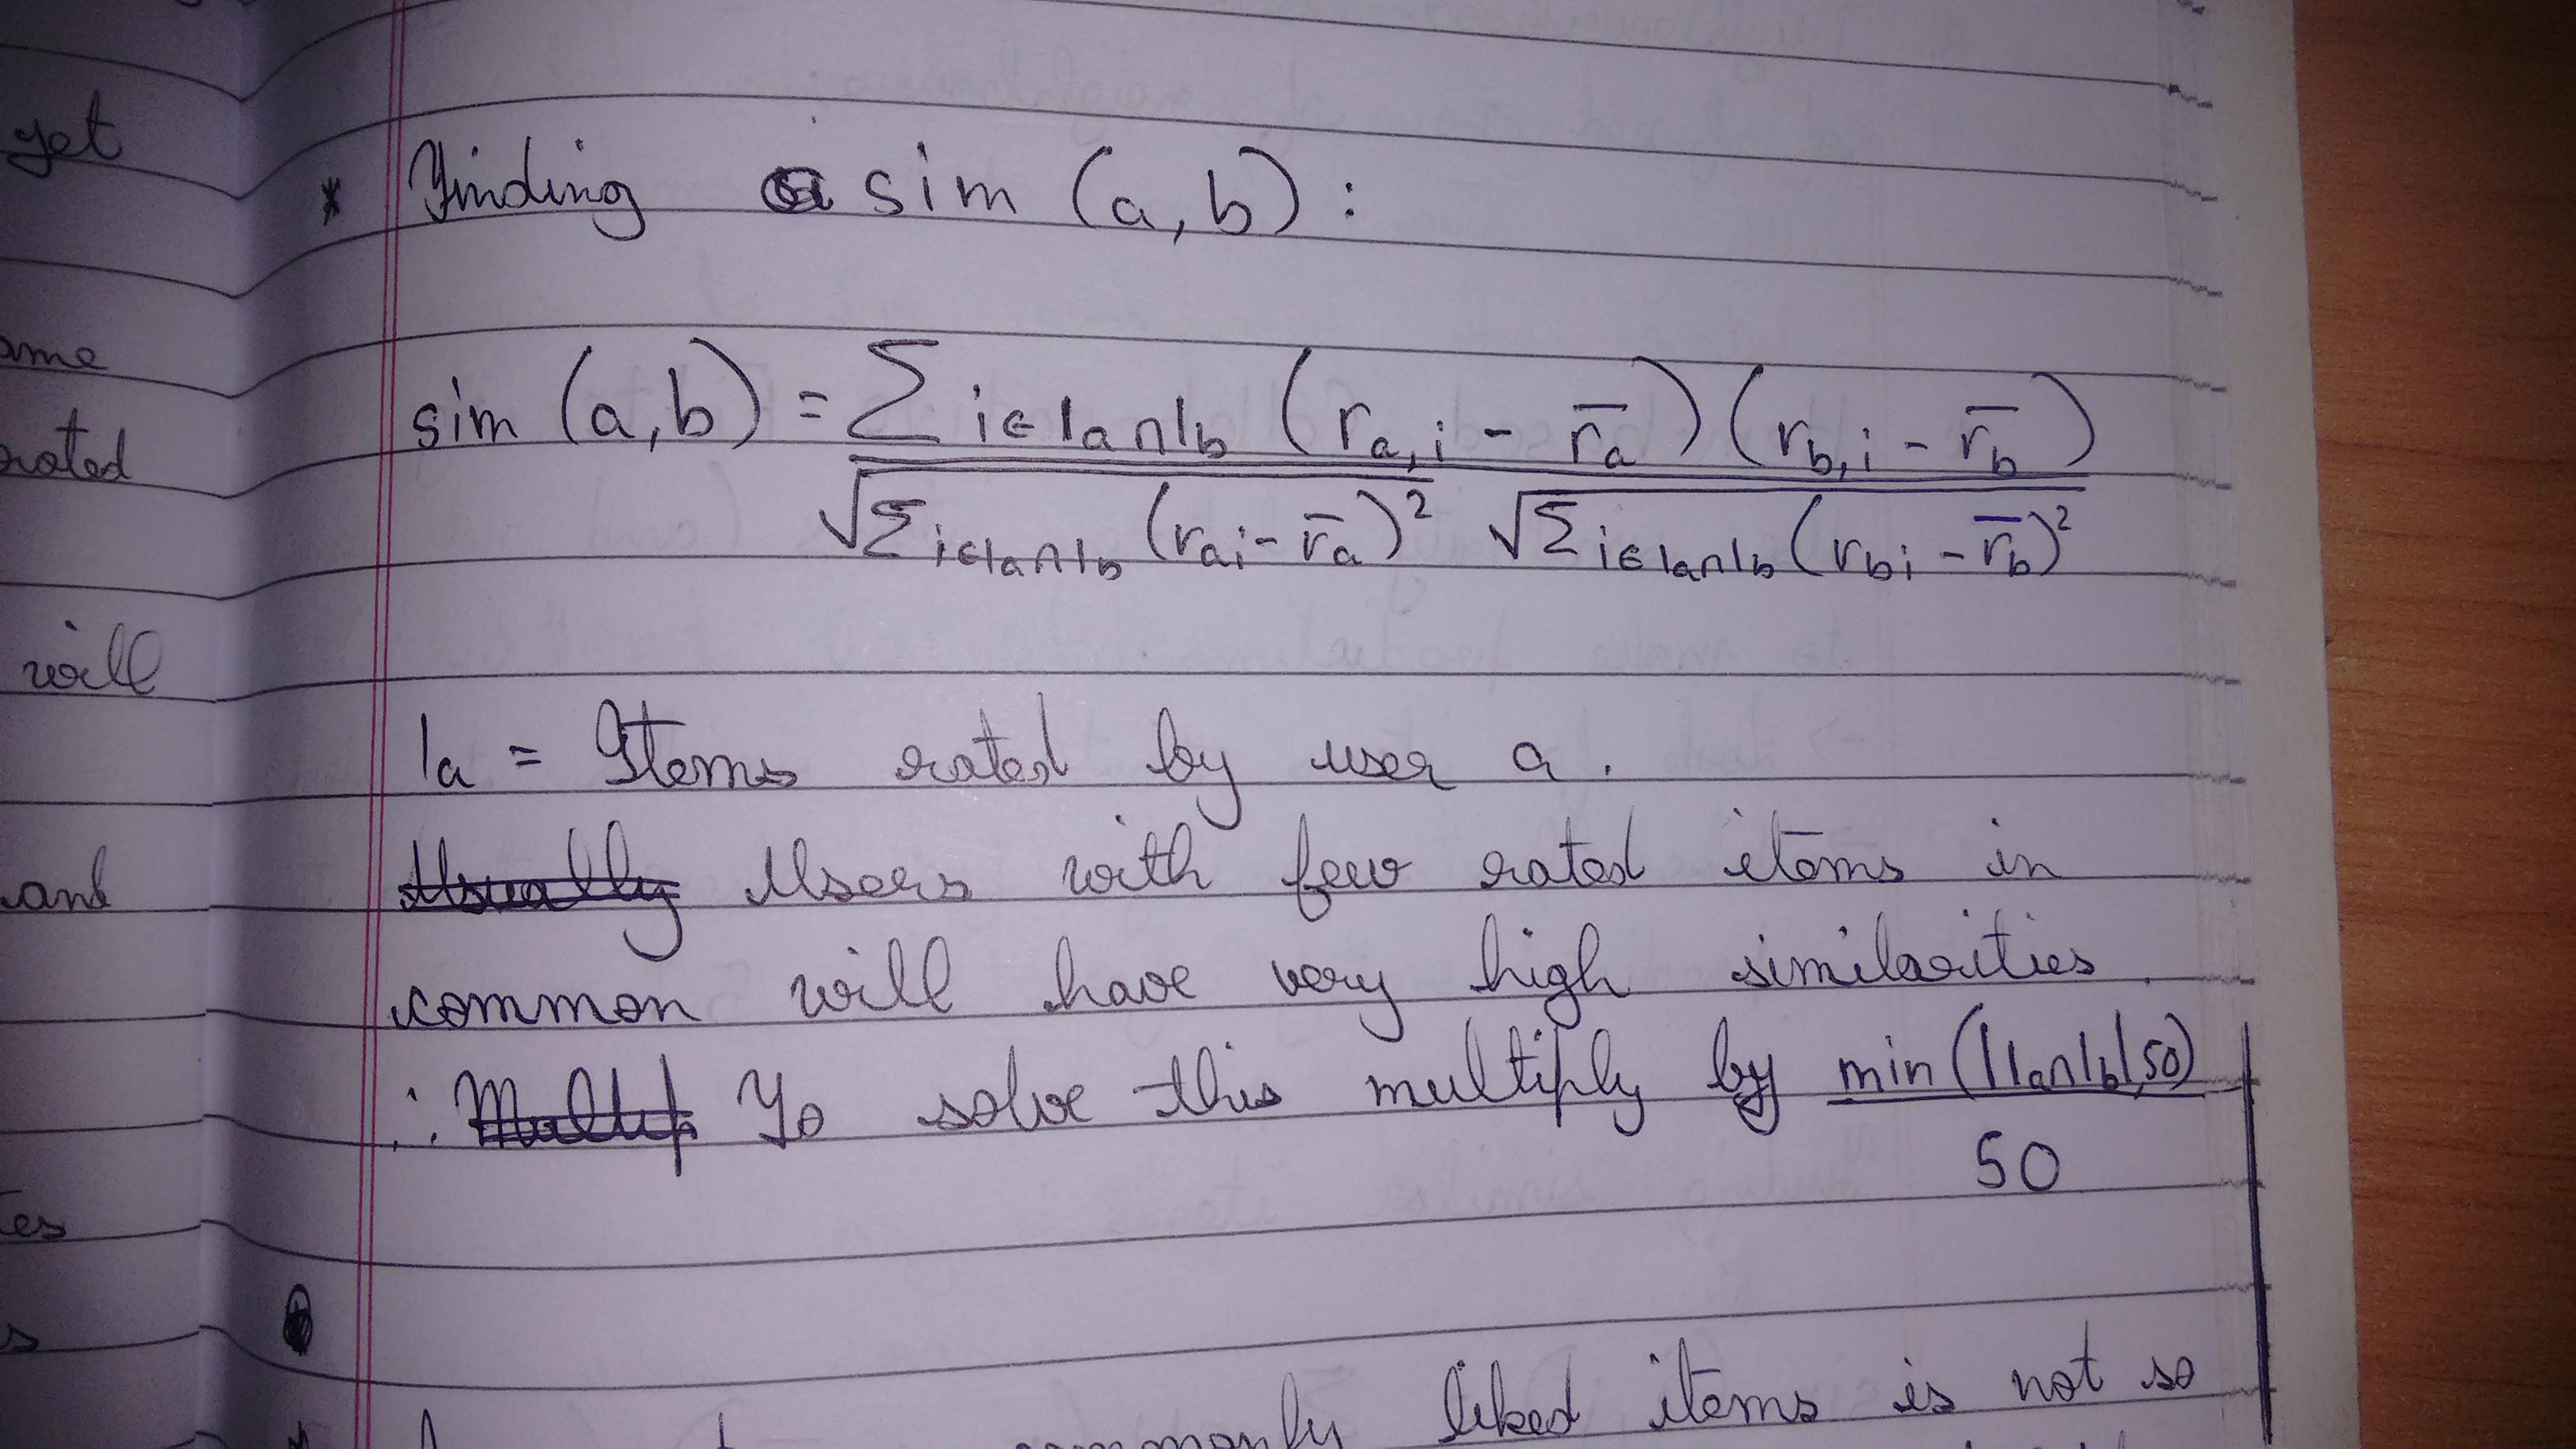 get
ame
rated
will
and
es
s
* Finding sim (a, b) :
sim (a, b) = ∑ i ∈ Ia ∩ Ib (ra,i - r̄a) (rb,i - r̄b)
√∑ i ∈ Ia ∩ Ib (rai - r̄a)² √∑ i ∈ Ia ∩ Ib (rbi - r̄b)²
Ia = Items rated by user a.
Usually Users with few rated items in
common will have very high similarities.
∴ Multip To solve this multiply by min (|Ia ∩ Ib|, 50)
50
commonly liked items is not so